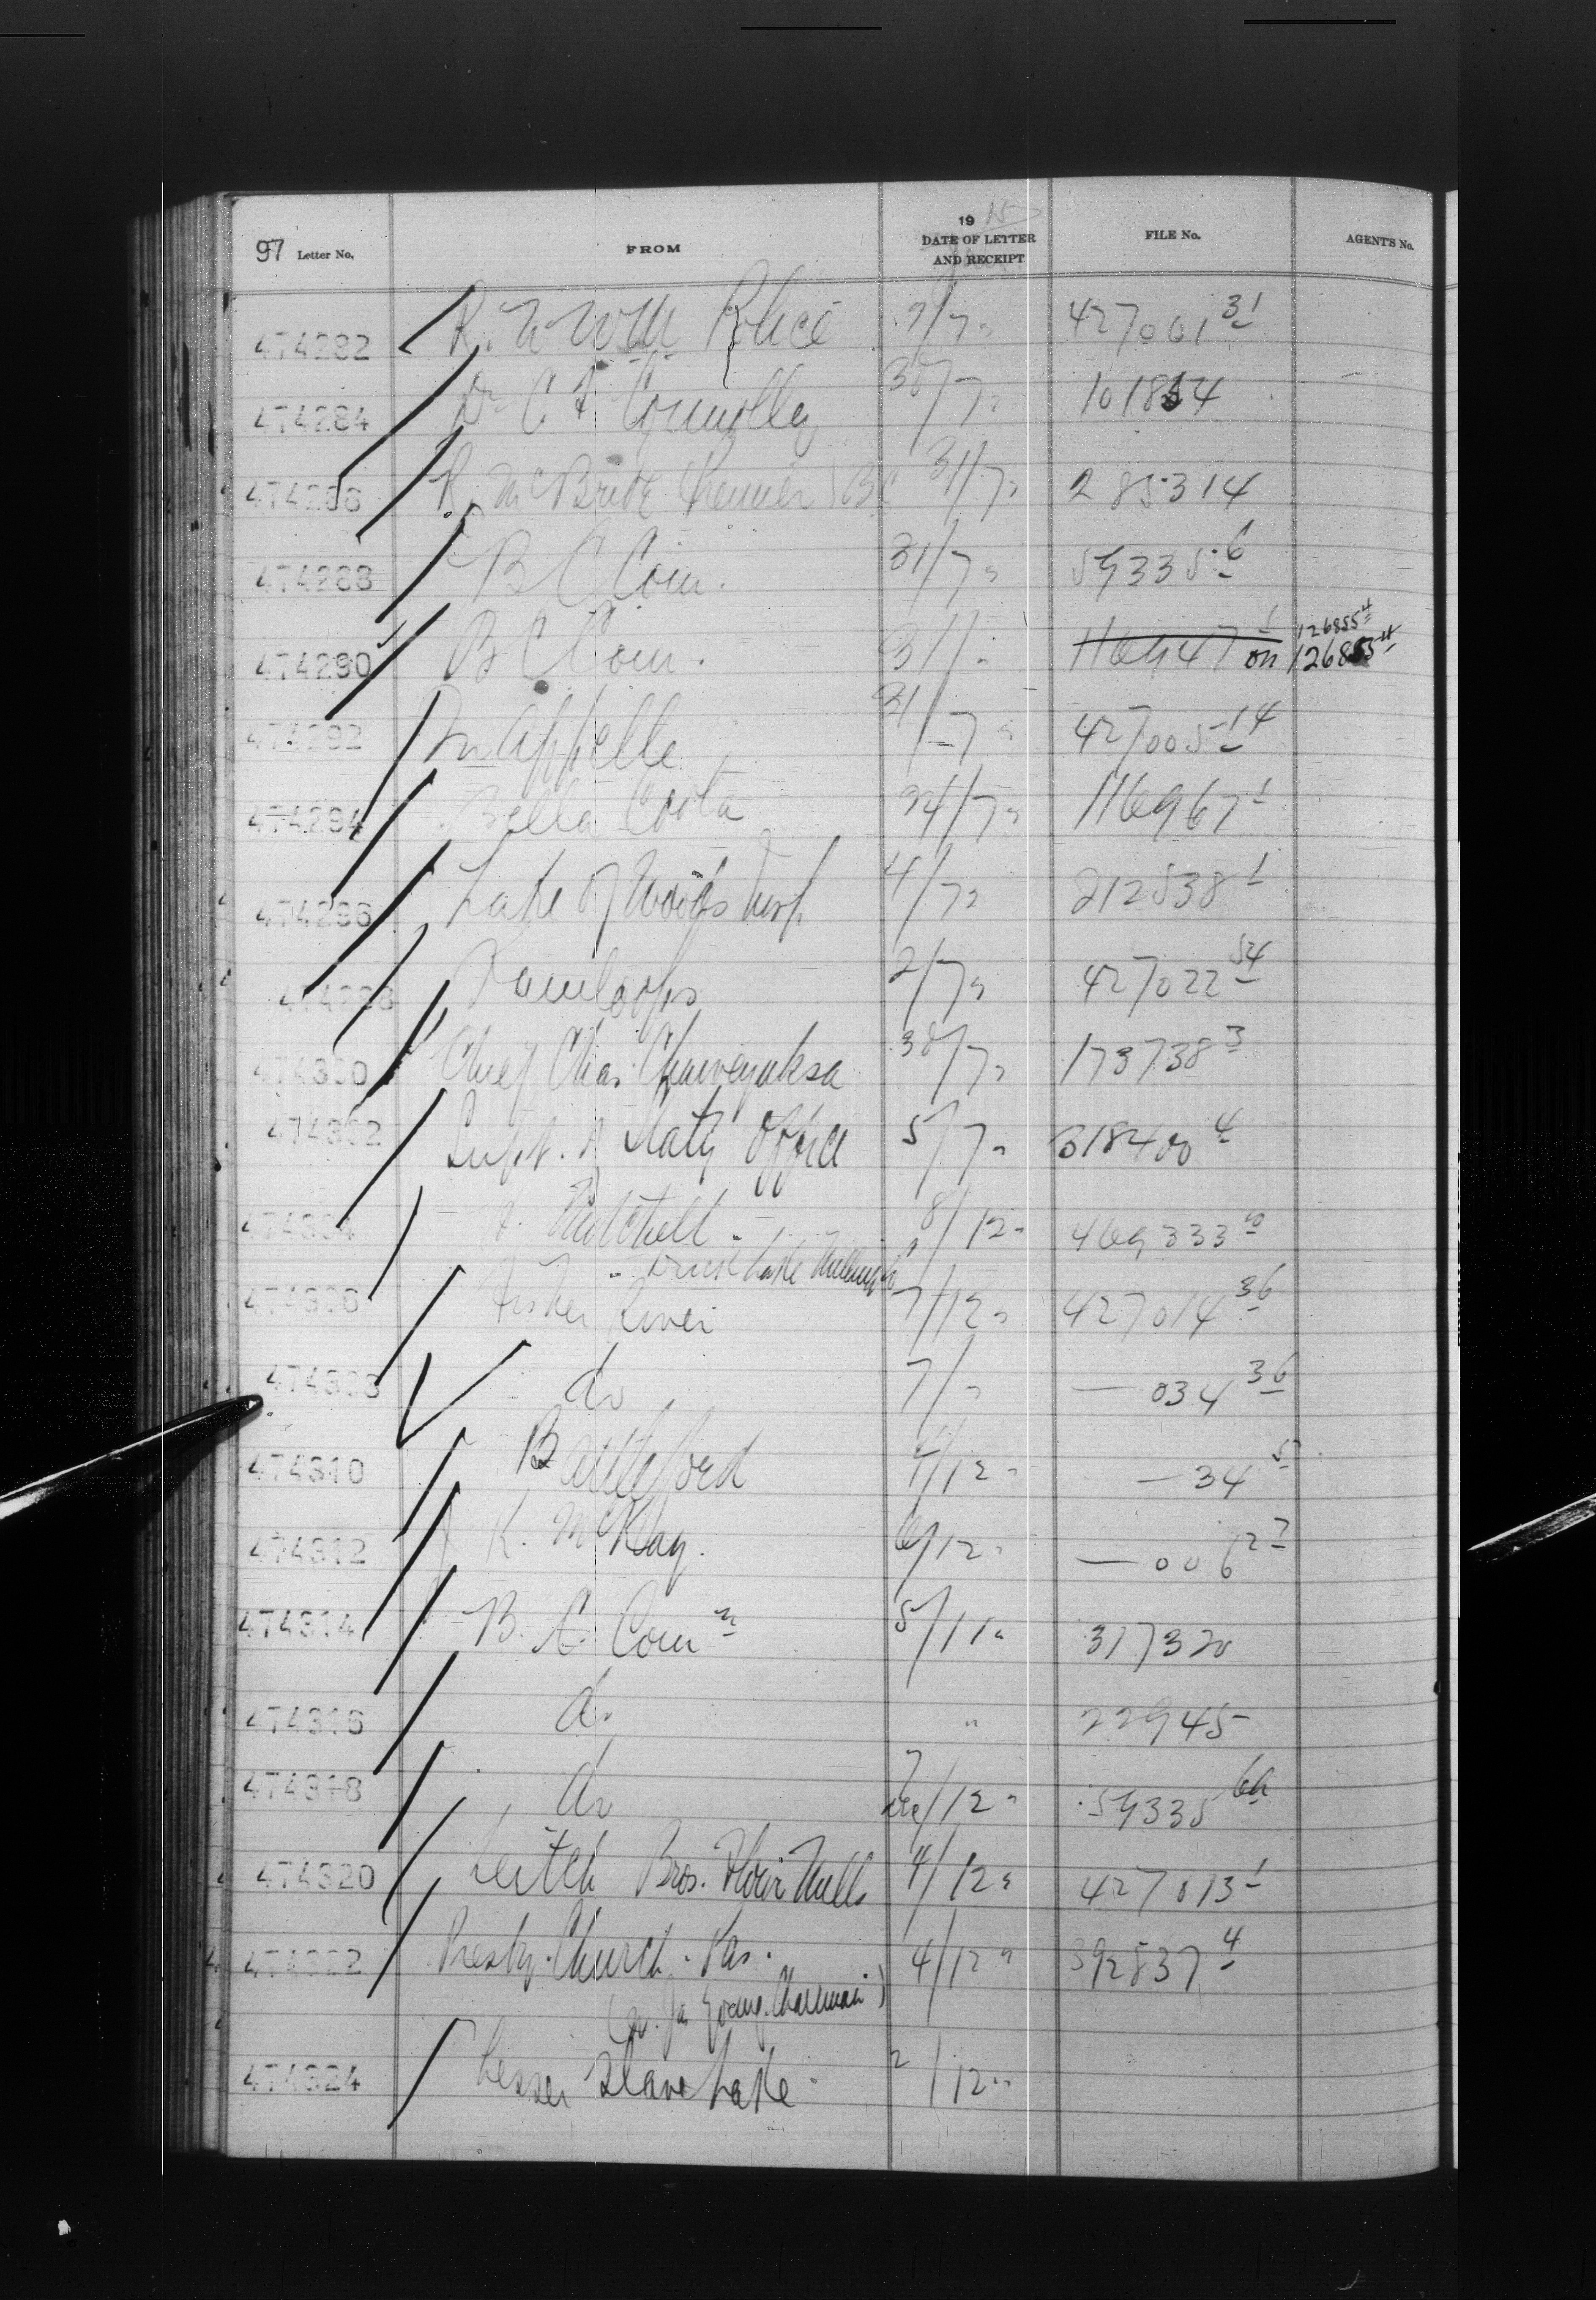 97 Letter No. FROM 19 DATE OF LETTER AND RECEIPT FILE No. AGENT'S No.
474282 R. N. W. M. Police 7/7 " 427001 31
474284 Dr C F Connolly 30/7 " 101854
474286 R. McBride Premier B C 31/7 " 285314
474288 B C Com. 31/7 " 59335 6
474290 B C Com. 31/ " 116947 1 on 126855 4 126855 4
474292 Qu'Appelle 31/7 " 427005 14
474294 Bella Coola 24/7 " 116967 1
474296 Lake of Woods Insp. 4/7 " 212538 1
474298 Kamloops 2/7 " 427022 54
474300 Chief Chas. 30/7 " 173738 3
474302 Supt. of Staty Office 5/7 " 318400 4
474304 Mitchell. 8/12 " 469333
Lake
474306 Fisher River 7/12 " 427014 36
474308 do 7/ " — 034 36
474310 Battleford 4/12 " — 34
474312 J K. McKay. 6/12 " — 006 27
474314 B. C. Com n 5/11 " 317320
474316 do " 22945
474318 do 7/12 " 59335 6a
474320 Leitch Bros. Flour Mills 4/12 " 427013 1
474322 Presby. Church. 4/12 " 392837 4
Chairman)
474324 Lesser Slave Lake 2/12 "